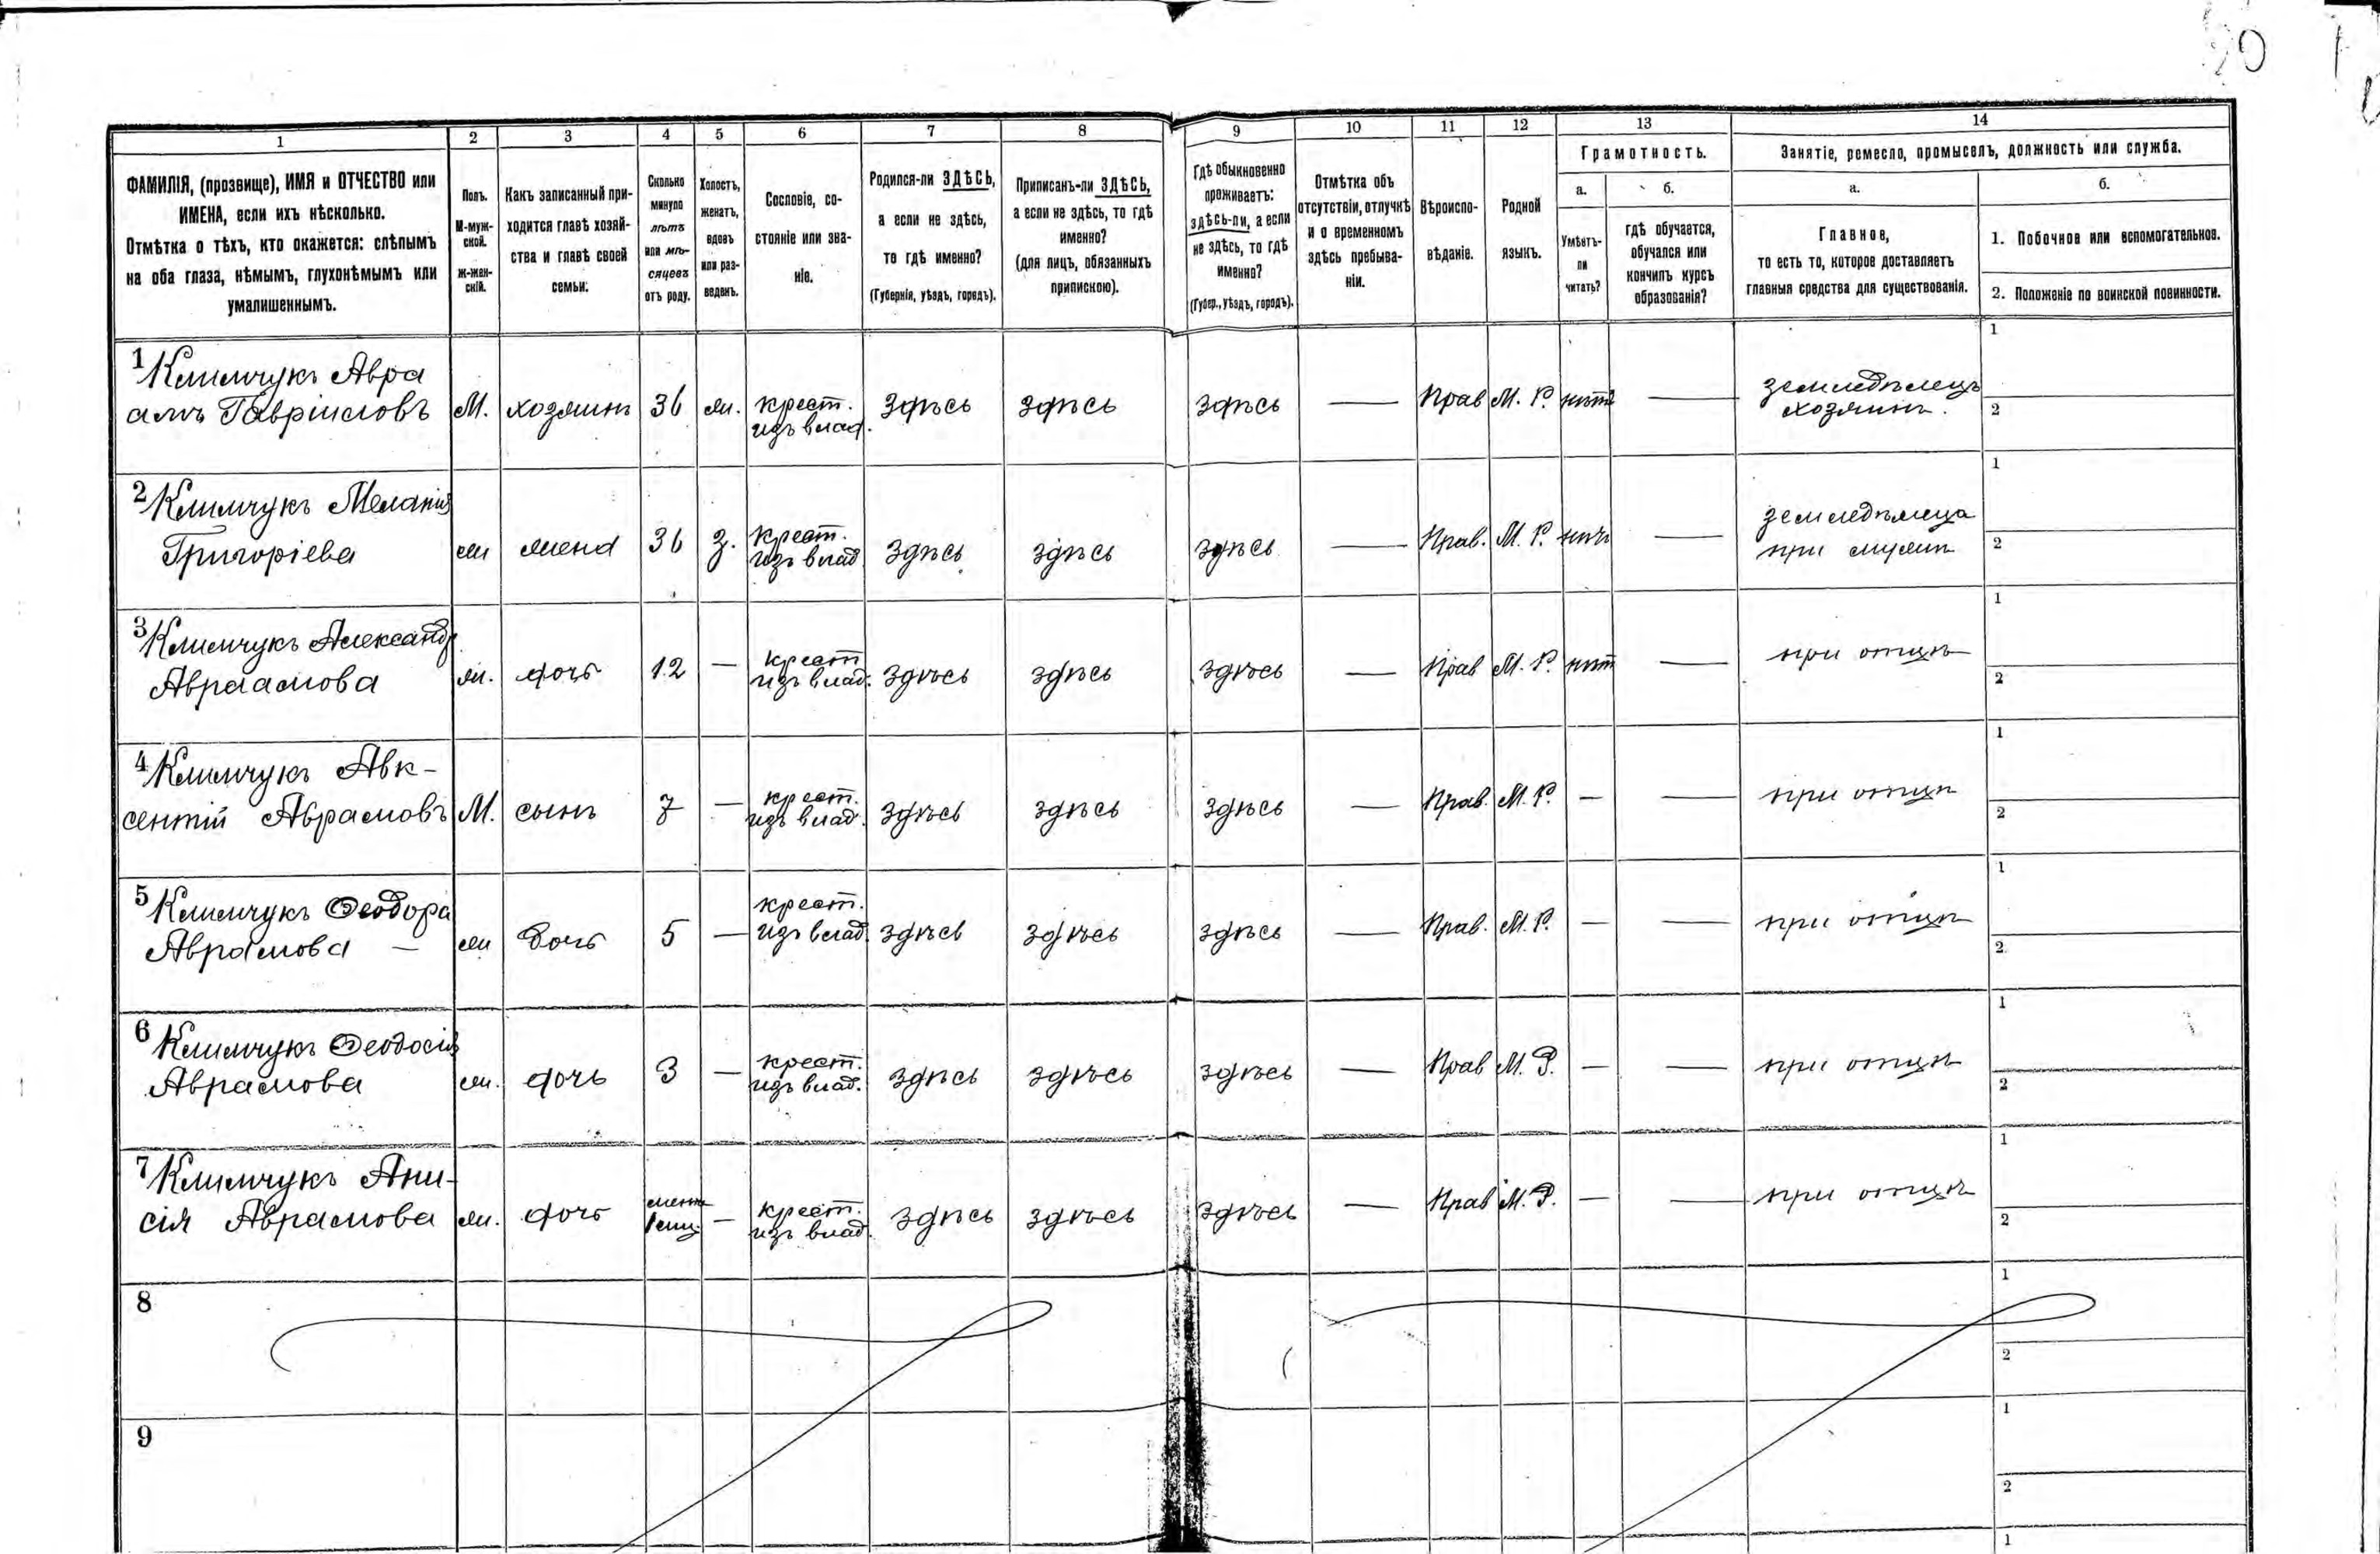 50
1
2
3
4
5
6
7
8
9
10
11
12
13
14
ФАМИЛІЯ, (прозвище), ИМЯ и ОТЧЕСТВО или
ИМЕНА, если ихъ нѣсколько.
Отмѣтка о тѣхъ, кто окажется: слѣпымъ
на оба глаза, нѣмымъ, глухонѣмымъ или
умалишеннымъ.
Полъ.
М-муж-
ской.
Ж-жен-
скій.
Какъ записанный при-
ходится главѣ хозяй-
ства и главѣ своей
семьи:
Сколько
минуло
лѣтъ
или мѣ-
сяцевъ
отъ роду.
Холостъ,
женатъ,
вдовъ
или раз-
веденъ.
Сословіе, со-
стояніе или зва-
ніе.
Родился-ли ЗДѢСЬ,
а если не здѣсь,
то гдѣ именно?
(Губернія, уѣздъ, городъ).
Приписанъ-ли ЗДѢСЬ,
а если не здѣсь, то гдѣ
именно?
(для лицъ, обязанныхъ
припискою).
Гдѣ обыкновенно
проживаетъ:
здѣсь-ли, а если
не здѣсь, то гдѣ
именно?
(Губер., уѣздъ, городъ).
Отмѣтка объ
отсутствіи, отлучкѣ
и о временномъ
здѣсь пребыва-
ніи.
Вѣроиспо-
вѣданіе.
Родной
языкъ.
Грамотность.
а.
Умѣетъ-
ли
читать?
б.
гдѣ обучается,
обучался или
кончилъ курсъ
образованія?
Занятіе, ремесло, промыселъ, должность или служба.
а.
Главное,
то есть то, которое доставляетъ
главныя средства для существованія.
б.
1. Побочное или вспомогательное.
2. Положеніе по воинской повинности.
1 Климчукъ Авра
амъ Гавріиловъ
М.
хозяинъ
36
ж.
крест.
изъ влад.
здѣсь
здѣсь
здѣсь
—
Прав
М. Р.
нѣтъ
—
земледѣлецъ
хозяинъ.
1
2
2 Климчукъ Меланія
Григоріева
ж
жена
36
з.
крест.
изъ влад
здѣсь
здѣсь
здѣсь
—
Прав.
М. Р.
—
земледѣлица
при мужѣ
1
2
3 Климчукъ Александр
Авраамова
ж.
дочь
12
—
крест
изъ влад.
здѣсь
здѣсь
здѣсь
—
Прав
М. Р.
нѣт
—
при отцѣ
1
2
4 Климчукъ Авк-
сентій Аврамовъ
М.
сынъ
7
—
крест.
изъ влад.
здѣсь
здѣсь
здѣсь
—
Прав.
М. Р.
—
—
при отцѣ
1
2
5 Климчукъ Ѳеодора
Аврамова —
ж
дочь
5
—
крест.
изъ влад.
здѣсь
здѣсь
здѣсь
—
Прав.
М. Р.
—
—
при отцѣ
1
2
6 Климчукъ Ѳеодосія
Аврамова
ж.
дочь
3
—
крест.
изъ влад.
здѣсь
здѣсь
здѣсь
—
Прав
М. Р.
—
—
при отцѣ
1
2
7 Климчукъ Ани-
сія Аврамова
ж.
дочь
—
крест.
изъ влад.
здѣсь
здѣсь
здѣсь
—
Прав
М. Р.
—
—
при отцѣ
1
2
8
1
2
9
1
2
1